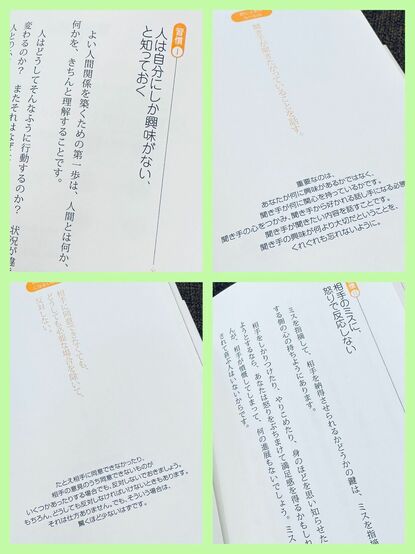 習慣1
人は自分にしか興味がない、
と知っておく
よい人間関係を築くための第一歩は、人間とは何か、
何かを、きちんと理解することです。
人はどうしてそんなふうに行動するのか？
変わるのか？　またそれはなぜ
聞き手が聞きたがっていることを話す。
重要なのは、
あなたが何に興味があるかではなく、
聞き手が何に関心を持っているかです。
聞き手の心をつかみ、聞き手から好かれる話し手になる必
聞き手が聞きたい内容を話すことです。
聞き手の興味が何より大切だということを、
くれぐれも忘れないように。
相手に同意できなくても、
どうしても必要な場合を除いて、
反対しない。
たとえ相手に同意できなかったり、
相手の意見のうち同意できないものが
いくつかあったりする場合でも、反対しないでおきましょう。
もちろん、どうしても反対しなければいけないときもあります。
それは仕方ありません。でも、そういう場合は、
驚くほど少ないはずです。
相手のミスに、
怒りで反応しない
ミスを指摘して、相手を納得させられるかどうかの鍵は、ミスを指摘
する側の心の持ちようにあります。
相手をしかりつけたり、やりこめたり、身のほどを思い知らせた
ようとするなら、あなたは怒りをぶちまけて満足感を得るかもしれ
んが、相手が憤慨してしまって、何の進展もないでしょう。ミス
されて喜ぶ人はいないからです。